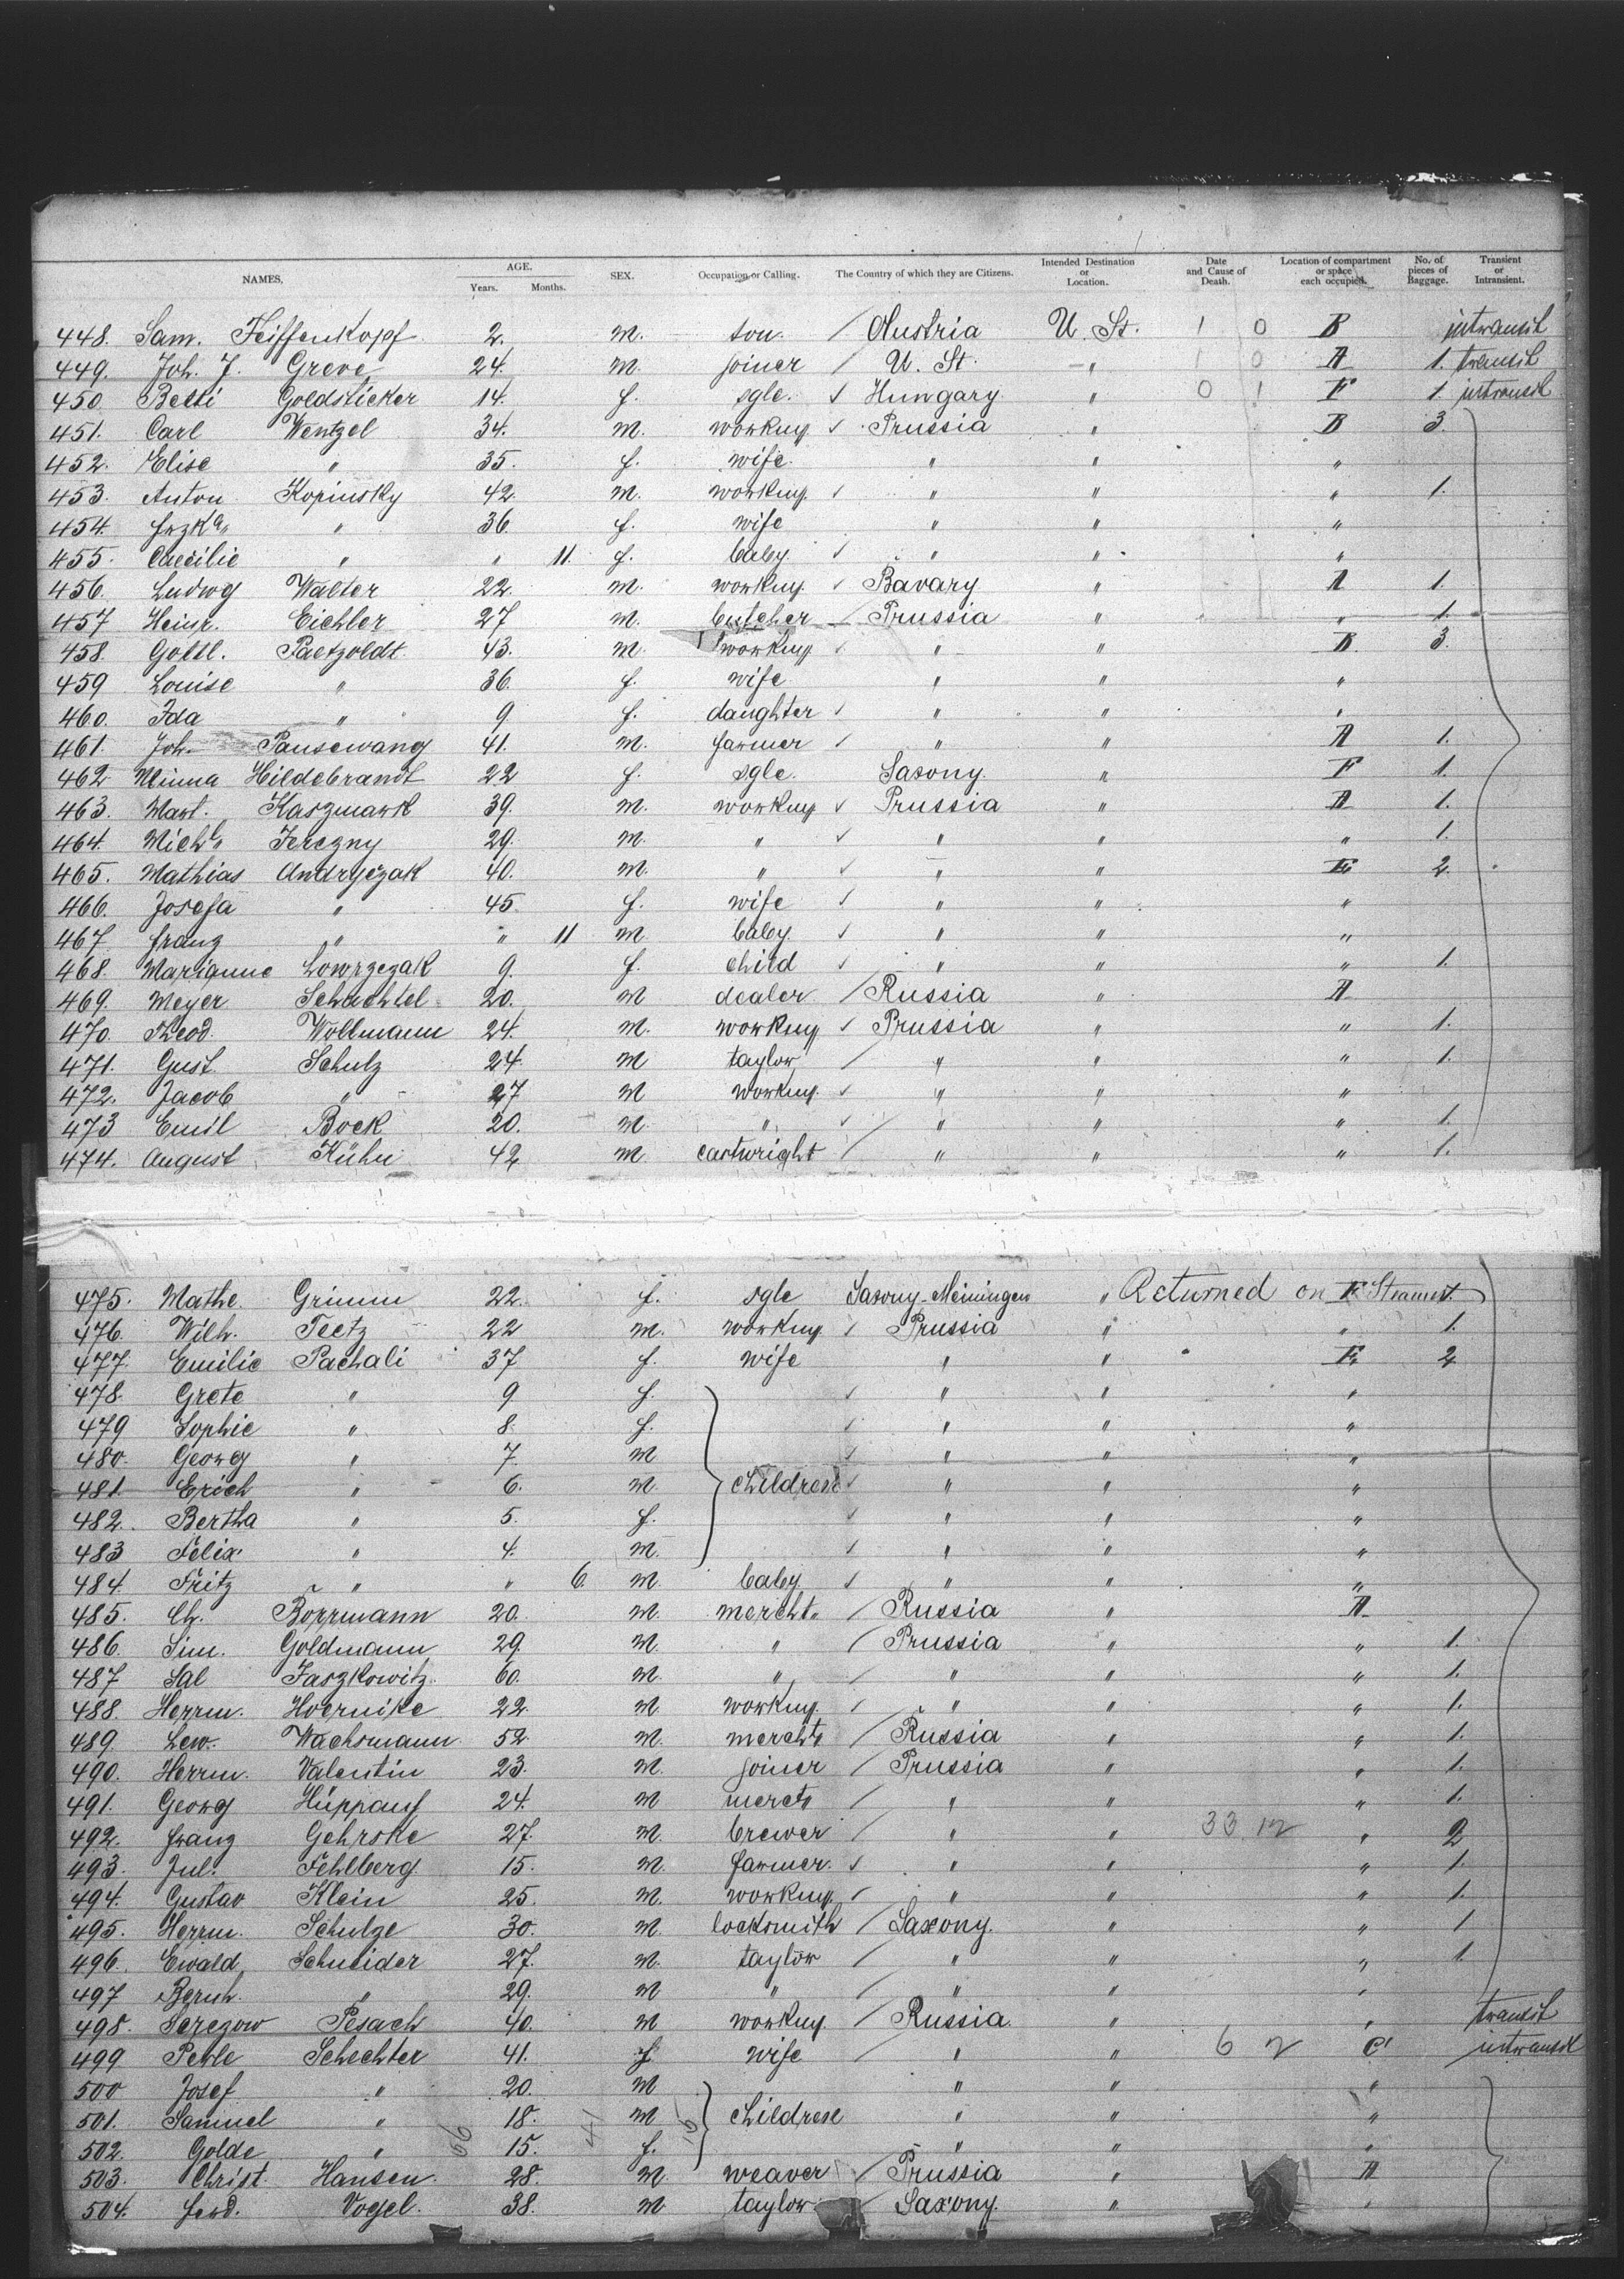 NAMES. AGE. Years. Months. SEX. Occupation or Calling. The Country of which they are Citizens. Intended Destination or Location. Date and Cause of Death. Location of compartment or space each occupied. No. of pieces of Baggage. Transient or Intransient.
448. Sam. Feiffenkopf 2. m. son. / Austria U. St. 1 0 B intransit
449. Joh. J. Greve 24. m. joiner / U. St. " 1 0 A 1. transit
450 Betti Goldsticker 14. f. sgle. ✓ Hungary " 0 1 F 1 intransit
451. Carl Wentzel 34. m. workmg. ✓ Prussia " B 3.
452. Elise " 35. f. wife. " " "
453. Anton Kopinsky 42. m. workmg. ✓ " " " 1.
454. Frzka. " 36. f. wife " " "
455. Caecilie " " 11. f. baby. ✓ " " "
456. Ludwg Walter 22. m. workmg. ✓ Bavary " A 1.
457 Heinr. Eichler 27 m. butcher / Prussia " " 1.
458. Gottl. Paetzoldt 43. m. workmg ✓ " " B 3.
459 Louise " 36. f. wife " " "
460. Ida " 9 f. daughter ✓ " " "
461. Joh. Pansewang 41. m. farmer ✓ " " A 1.
462 Minna Hildebrandt 22 f. sgle. Saxony. " F 1.
463. Mart. Kaszmark 39. m. workmg ✓ Prussia " A 1.
464. Michl. Jerezny 29. m. " ✓ " " " 1.
465. Mathias Andryczak 40. m. " ✓ " " E 2.
466. Josefa " 45. f. wife ✓ " " "
467. Franz " " 11 m. baby. ✓ " " "
468. Marianne Lowrzezak 9. f. child ✓ " " " 1.
469. Meyer Schachtel 20. m dealer / Russia " A
470. Theod. Wollmann 24. m. workmg ✓ Prussia " " 1.
471. Gust. Schulz 24. m taylor / " " " 1.
472. Jacob " 27 m workmg. ✓ " " "
473 Emil Bock 20. m. " ✓ " " " 1.
474. August Kühn 42 m cartwright / " " " 1.
475. Mathe. Grimm 22. f. sgle Saxony-Meiningen " Returned on F Steamer 1.
476. Wilh. Teetz 22 m. workmg. ✓ Prussia " " 1.
477. Emilie Pachali 37 f. wife " " E 2
478. Grete " 9 f. ✓ " " "
479 Sophie " 8. f. ✓ " " "
480. Georg " 7. m ✓ " " "
481. Erich " 6. m. children ✓ " " "
482. Bertha " 5. f. ✓ " " "
483 Felix " 4. m. ✓ " " "
484. Fritz " " 6. m. baby. ✓ " " "
485. Ch. Borrmann 20. m. mercht. / Russia " A
486. Sim. Goldmann 29. m. " / Prussia " " 1.
487 Sal Jaszkowitz 60. m. " / " " " 1.
488. Herrm. Hoernike 22. m. workmg. ✓ " " " 1.
489. Lew. Wachsmann 52 m. mercht. / Russia " " 1.
490. Herrm. Valentin 23. m. joiner / Prussia " " 1.
491. Georg Hüppauf 24. m mercht / " " " 1.
492. Franz Gehrske 27. m. brewer / " " 33 12 " 2
493. Jul. Fehlberg 15. m. farmer. ✓ " " " 1.
494. Gustav Klein 25. m. workmg. ✓ " " " 1.
495. Herrm. Schulze 30. m. locksmith / Saxony. " " 1
496. Ewald Schneider 27. m. taylor / " " " 1
497 Bernh. " 29. m " / " " "
498. Serezow Pesach 40. m workmg / Russia. " " transit
499 Perle Schechter 41. f wife " " 6 2 C intransit
500 Josef " 20. m " " "
501. Samuel " 18. m children " " "
502. Golde " 15. f. " " "
503. Christ. Hansen 28. m. weaver / Prussia " A
504. Ferd. Vogel 38. m taylor / Saxony. " "